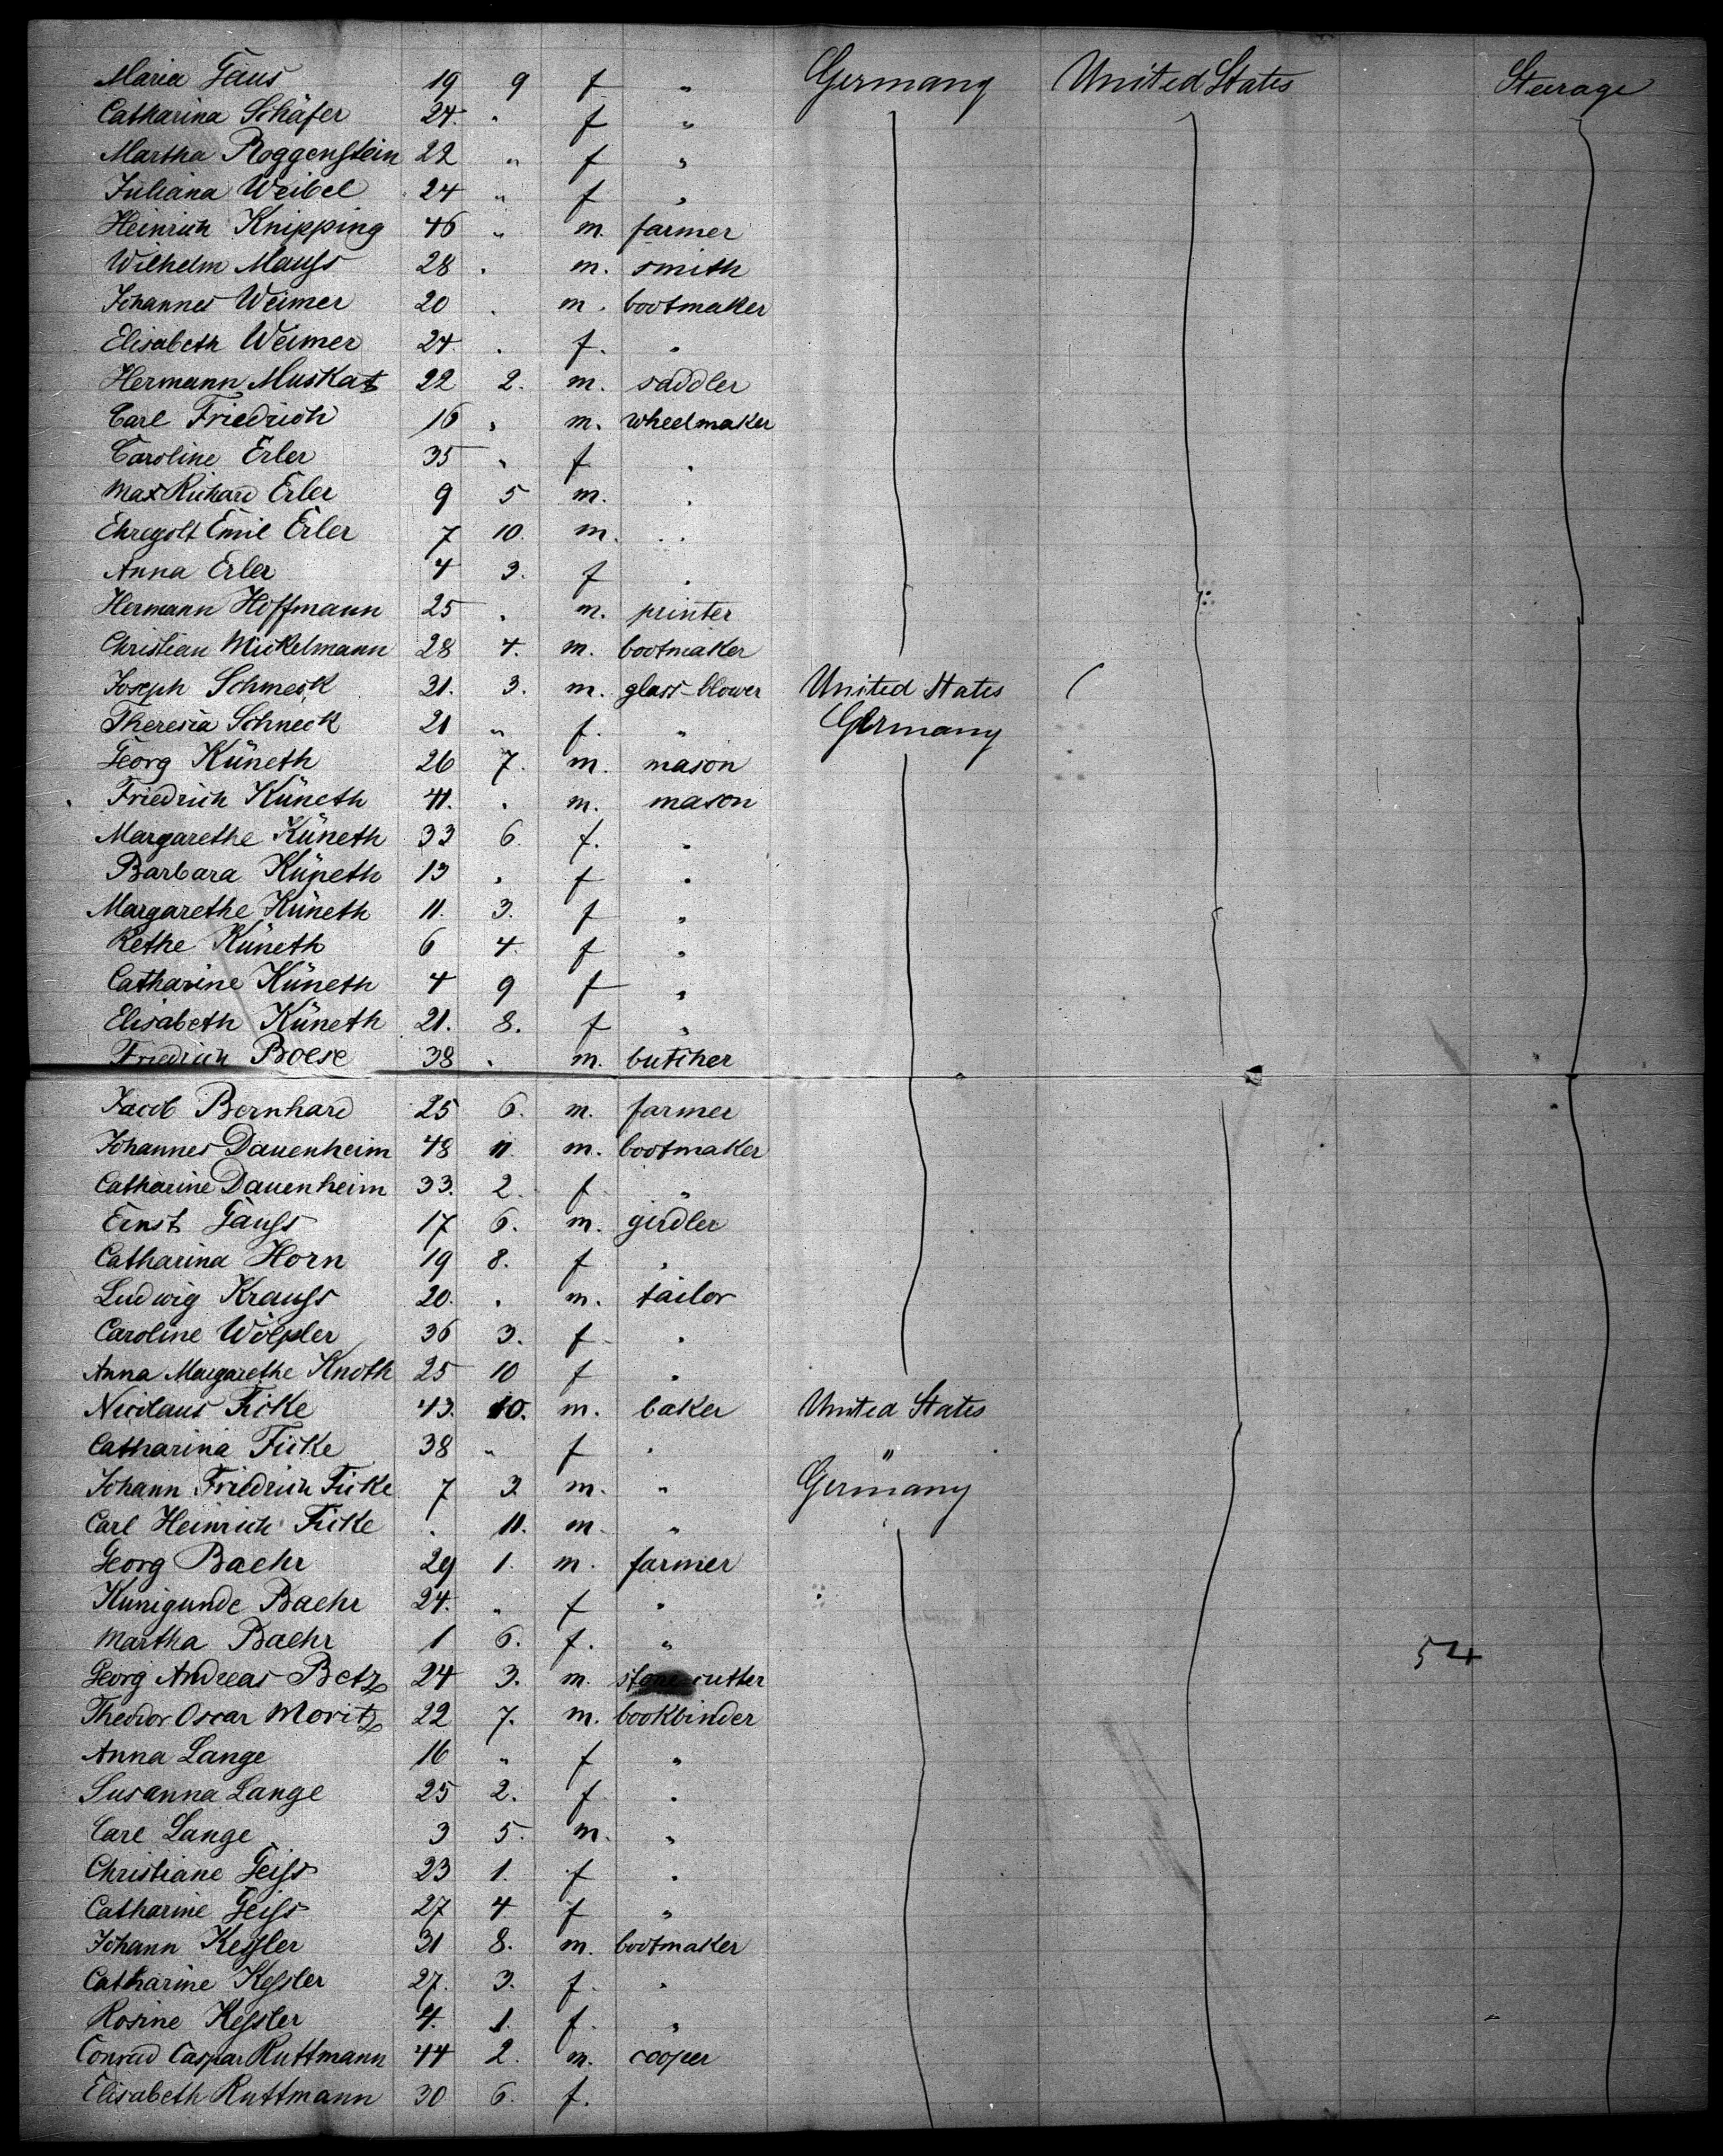 Maria Gaus 19 9 f " Germany United States Steerage
Catharina Schäfer 24. " f "
Martha Roggenstein 22 " f "
Juliana Weibel 24 " f "
Heinrich Knipping 46 " m. farmer
Wilhelm Mauss 28 " m. smith
Johannes Weimer 20 " m. bootmaker
Elisabeth Weimer 24. " f. "
Hermann Muskat 22 2. m. saddler
Carl Friedrich 16 " m. wheelmaker
Caroline Erler 35 " f "
Max Richard Erler 9 5 m. "
Ehregolt Emil Erler 7 10. m. "
Anna Erler 4 3. f "
Hermann Hoffmann 25 " m. printer
Christian Mickelmann 28 4. m. bootmaker
Joseph Schneck 21. 3. m. glass-blower United States
Theresia Schneck 21 " f. " Germany
Georg Küneth 26 7. m. mason
Friedrich Küneth 41. " m. mason
Margarethe Küneth 33 6. f. "
Barbara Küneth 13 " f "
Margarethe Küneth 11. 3. f "
Kethe Küneth 6 4. f "
Catharine Küneth 4 9 f "
Elisabeth Küneth 21. 8. f "
Friedrich Boese 38 " m. butcher
Jacob Bernhard 25 6. m. farmer
Johannes Dauenheim 48 11 m. bootmaker
Catharine Dauenheim 33. 2. f "
Ernst Gauss 17 6. m. girdler
Catharina Horn 19 8. f "
Ludwig Krauss 20. " m. tailor
Caroline Wölpler 36 3. f "
Anna Margarethe Knoth 25 10 f "
Nicolaus Ficke 43. 10. m. baker United States
Catharina Ficke 38 " f " "
Johann Friedrich Ficke 7 3 m. " Germany
Carl Heinrich Ficke . 11. m. "
Georg Baehr 29 1. m. farmer
Kunigunde Baehr 24. " f "
Martha Baehr 1 6. f. " 54
Georg Andreas Betz 24 3. m. stone cutter
Theodor Oscar Moritz 22 7. m. bookbinder
Anna Lange 16 " f "
Susanna Lange 25 2. f "
Carl Lange 3 5. m. "
Christiane Geiss 23 1. f "
Catharine Geiss 27 4 f "
Johann Kessler 31 8. m. bootmaker
Catharine Kessler 27. 3. f. "
Rosine Kessler 4. 1. f. "
Conrad Caspar Ruttmann 44 2. m. cooper
Elisabeth Ruttmann 30 6. f.